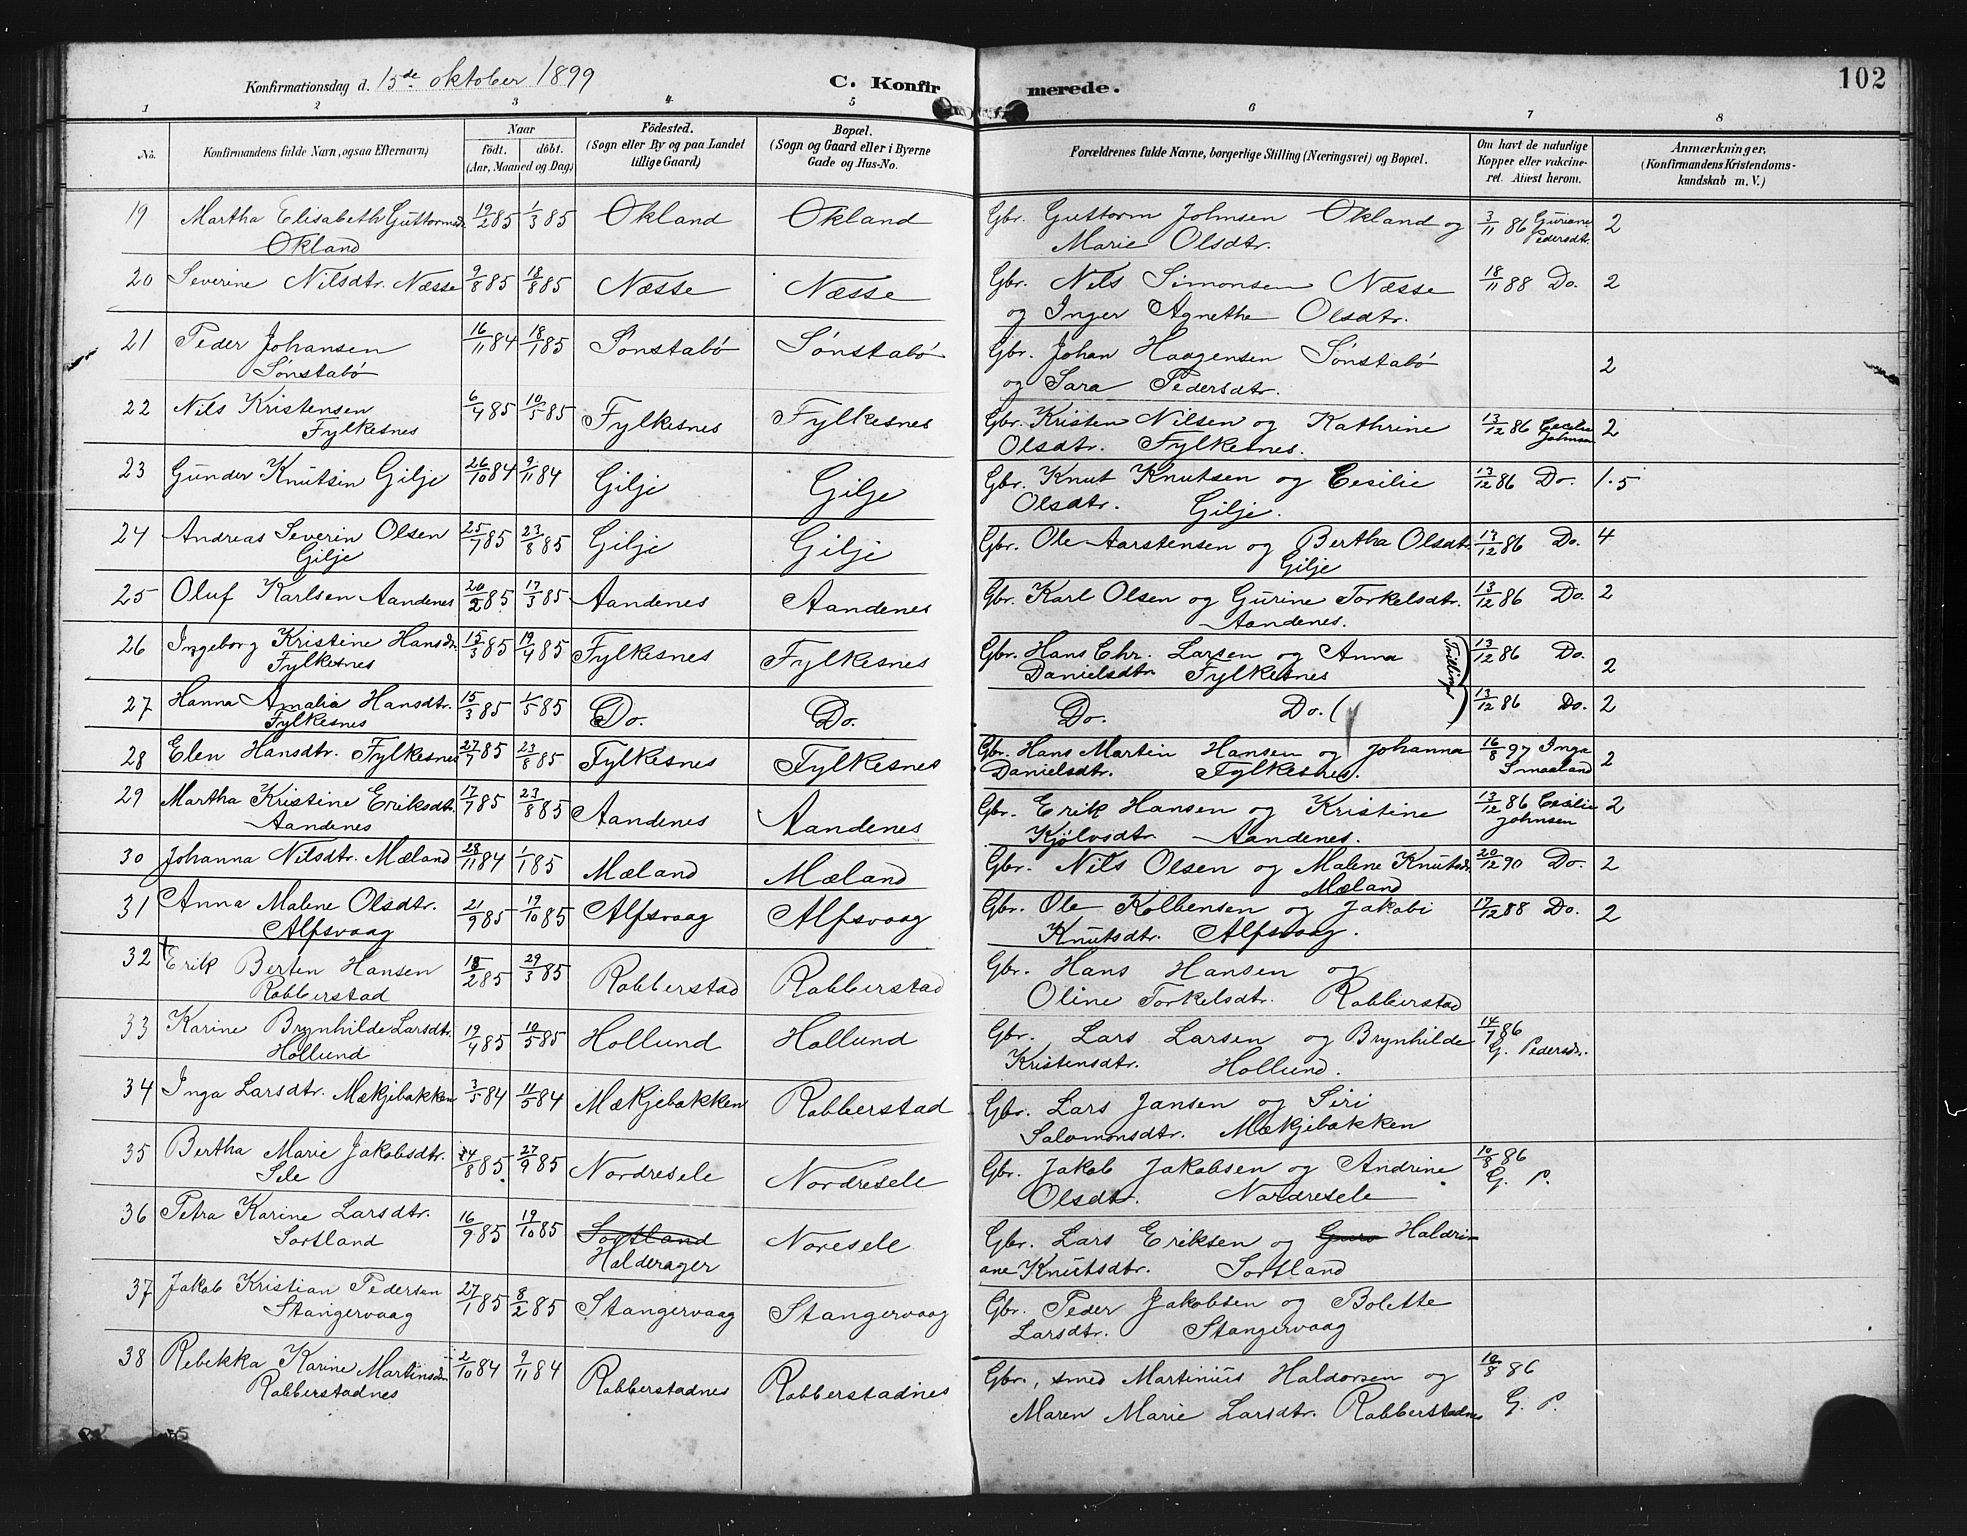 Konfirmationsdag d. 15de oktober 1899 C. Konfirmerede. 102
1 2 3 4 5 6 7 8
No. Konfirmandens fulde Navn, ogsaa Efternavn) Naar födt. döbt. (Aar, Maaned og Dag) Födested. (Sogn eller By og paa Landet tillige Gaard) Bopæl. (Sogn og Gaard eller i Byerne Gade og Hus-No. Forældrenes fulde Navne, borgerlige Stilling (Næringsvei) og Bopæl. Om havt de naturlige Kopper eller vakcineret. Attest herom. Anmærkninger, (Konfirmandens Kristendomskundskab m. V.)
19 Martha Elisabeth Guttormsdr. 19/2 85 1/3 85 Økland Økland Gbr. Guttorm Johnsen Økland og 3/11 86 Guriane 2
Økland Marie Olsdtr. Pedersdtr.
20 Severine Nilsdtr. Næsse 9/8 85 18/8 85 Næsse Næsse Gbr. Nils Simonsen Næsse 18/11 88 Do. 2
og Inger Agnethe Olsdtr.
21 Peder Johansen 16/11 84 18/1 85 Sønstabø Sønstabø Gbr. Johan Haagensen Sønstabø 2
Sønstabø og Sara Pedersdtr.
22 Nils Kristensen 6/4 85 10/5 85 Fylkesnes Fylkesnes Gbr. Kristen Nilsen og Kathrine 13/12 86 Cecilie 2
Fylkesnes Olsdtr. Fylkesnes. Johnsen
23 Gunder Knutsen Gilje 26/10 84 9/11 84 Gilje Gilje Gbr. Knut Knutsen og Cesilie 13/12 86 Do. 1.5
Olsdtr. Gilje.
24 Andreas Severin Olsen 25/7 85 23/8 85 Gilje Gilje Gbr. Ole Aarstensen og Bertha Olsdt. 13/12 86 Do. 4
Gilje Gilje
25 Oluf Karlsen Aandenes 20/2 85 17/3 85 Aandenes Aandenes Gbr. Karl Olsen og Gurine Torkelsdtr. 13/12 86 Do. 2
Aandenes.
26 Ingeborg Kristine Hansdr. 15/3 85 19/4 85 Fylkesnes Fylkesnes Gbr. Hans Chr. Larsen og Anna Tvillinger 13/12 86 Do. 2
Fylkesnes Danielsdtr. Fylkesnes
27 Hanna Amalia Hansdtr. 15/3 85 1/5 85 Do. Do. Do. Do. 13/12 86 Do. 2
Fylkesnes
28 Elen Hansdtr. Fylkesnes 27/7 85 23/8 85 Fylkesnes Fylkesnes Gbr. Hans Martin Hansen og Johanna 16/8 97 Inga 2
Danielsdtr. Fylkesnes. Smaaland
29 Martha Kristine Eriksdtr. 17/7 85 23/8 85 Aandenes Aandenes Gbr. Erik Hansen og Kristine 13/12 86 Cesilie 2
Aandenes Kjølvsdtr. Aandenes. Johnsen
30 Johanna Nilsdtr. Mæland 28/11 84 1/1 85 Mæland Mæland Gbr. Nils Olsen og Malene Knutsdr. 20/12 90 Do. 2
Mæland
31 Anna Malene Olsdtr. 21/9 85 19/10 85 Alfsvaag Alfsvaag Gbr. Ole Kolbensen og Jakobi 17/12 88 Do. 2
Alfsvaag Knutsdtr. Alfsvaag.
32 Erik Berten Hansen 18/2 85 29/3 85 Robberstad Robberstad Gbr. Hans Hansen og
Robberstad Oline Torkelsdtr. Robberstad
33 Karine Brynhilde Larsdtr. 19/4 85 10/5 85 Hollund Hollund Gbr. Lars Larsen og Brynhilde 14/7 86
Hollund Kristensdtr. Hollund. G. Pedersdr.
34 Inga Larsdtr. Mækjebakken 3/5 84 11/5 84 Mækjebakken Robberstad Gbr. Lars Jansen og Siri
Salomonsdtr. Mækjebakken
35 Bertha Marie Jakobsdtr. 24/8 85. 27/9 85 Nordresele Nordresele Gbr. Jakob Jakobsen og Andrine 10/8 86
Sele Olsdtr. Nordresele G. P.
36 Petra Karine Larsdtr. 16/9 85 19/10 85 Sortland Noresele Gbr. Lars Eriksen og Guro Haldri-
Sortland Halderager ane Knutsdtr. Sortland
37 Jakob Kristian Pedersen 27/1 85 8/2 85 Stangervaag Stangervaag Gbr. Peder Jakobsen og Bolette
Stangervaag Larsdtr. Stangervaag
38 Rebekka Karine Martinsdr. 2/10 84 9/11 84 Robberstadnes Robberstadnes Gbr., smed Martinius Haldorsen og 10/8 86
Robberstadnes Maren Marie Larsdtr. Robberstadnes G. P.